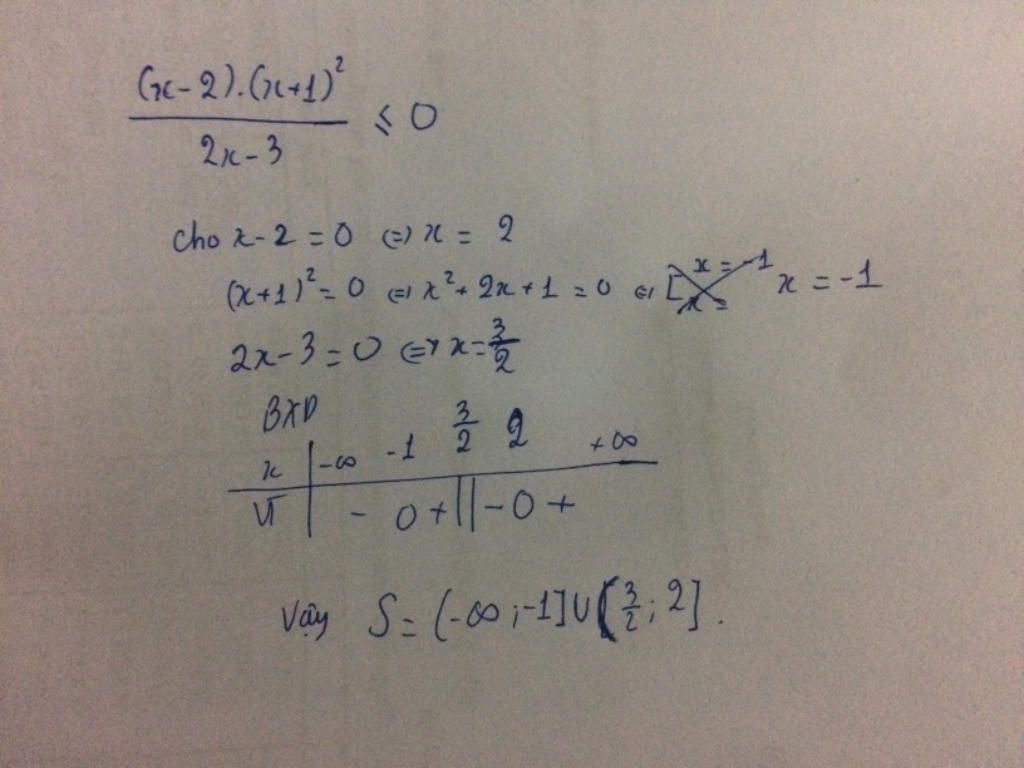 (x-2).(x+1)² / 2x-3 ≤ 0
cho x-2 = 0 ⇔ x = 2
(x+1)² = 0 ⇔ x² + 2x + 1 = 0 ⇔ x = -1
2x-3 = 0 ⇔ x = 3/2
BXD
x | -∞ -1 3/2 2 +∞
VT | - 0 + || - 0 +
Vậy S = (-∞; -1] ∪ (3/2; 2].